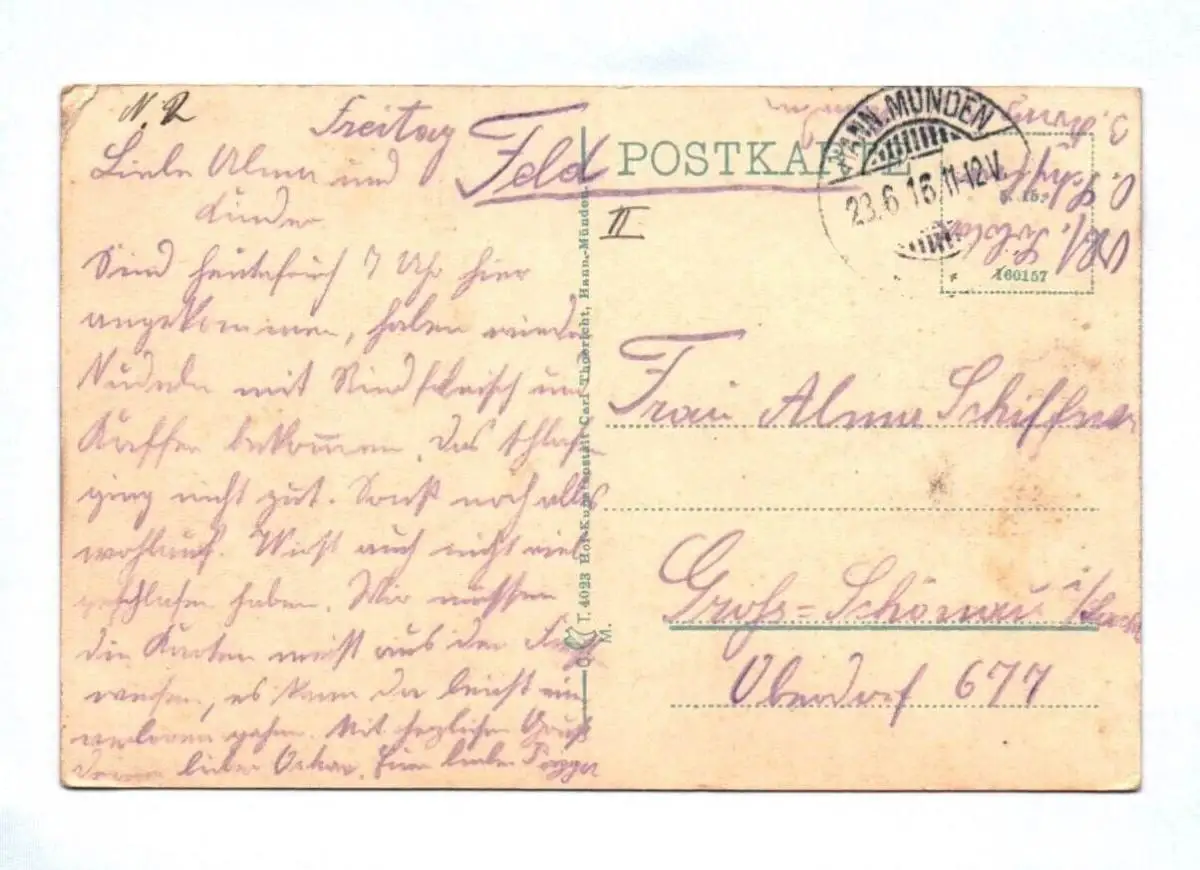 N. 2
Freitag
Liebe Alma und
Kinder
Sind heute früh 7 Uhr hier
angekommen, haben wieder
Nudeln mit Rindfleisch und
Kaffee bekommen. Das schlafen
ging nicht gut. Sonst noch alles
wohlauf. Wirst auch nicht viel
geschlafen haben. Wir müssen
die Karten meist aus den
werfen, es kann da leicht ein
verloren gehen. Mit herzlichen Gruß
lieber Oskar.
Feld
POSTKARTE
II
HANN. MÜNDEN
23.6.16.11-12V.
160157
T. 4023 Hof-Kunstanstalt Carl Thoericht, Hann.-Münden.
M.
Frau Alma Schiffner
Gross-Schönau i/Sachs
Oberdorf 677